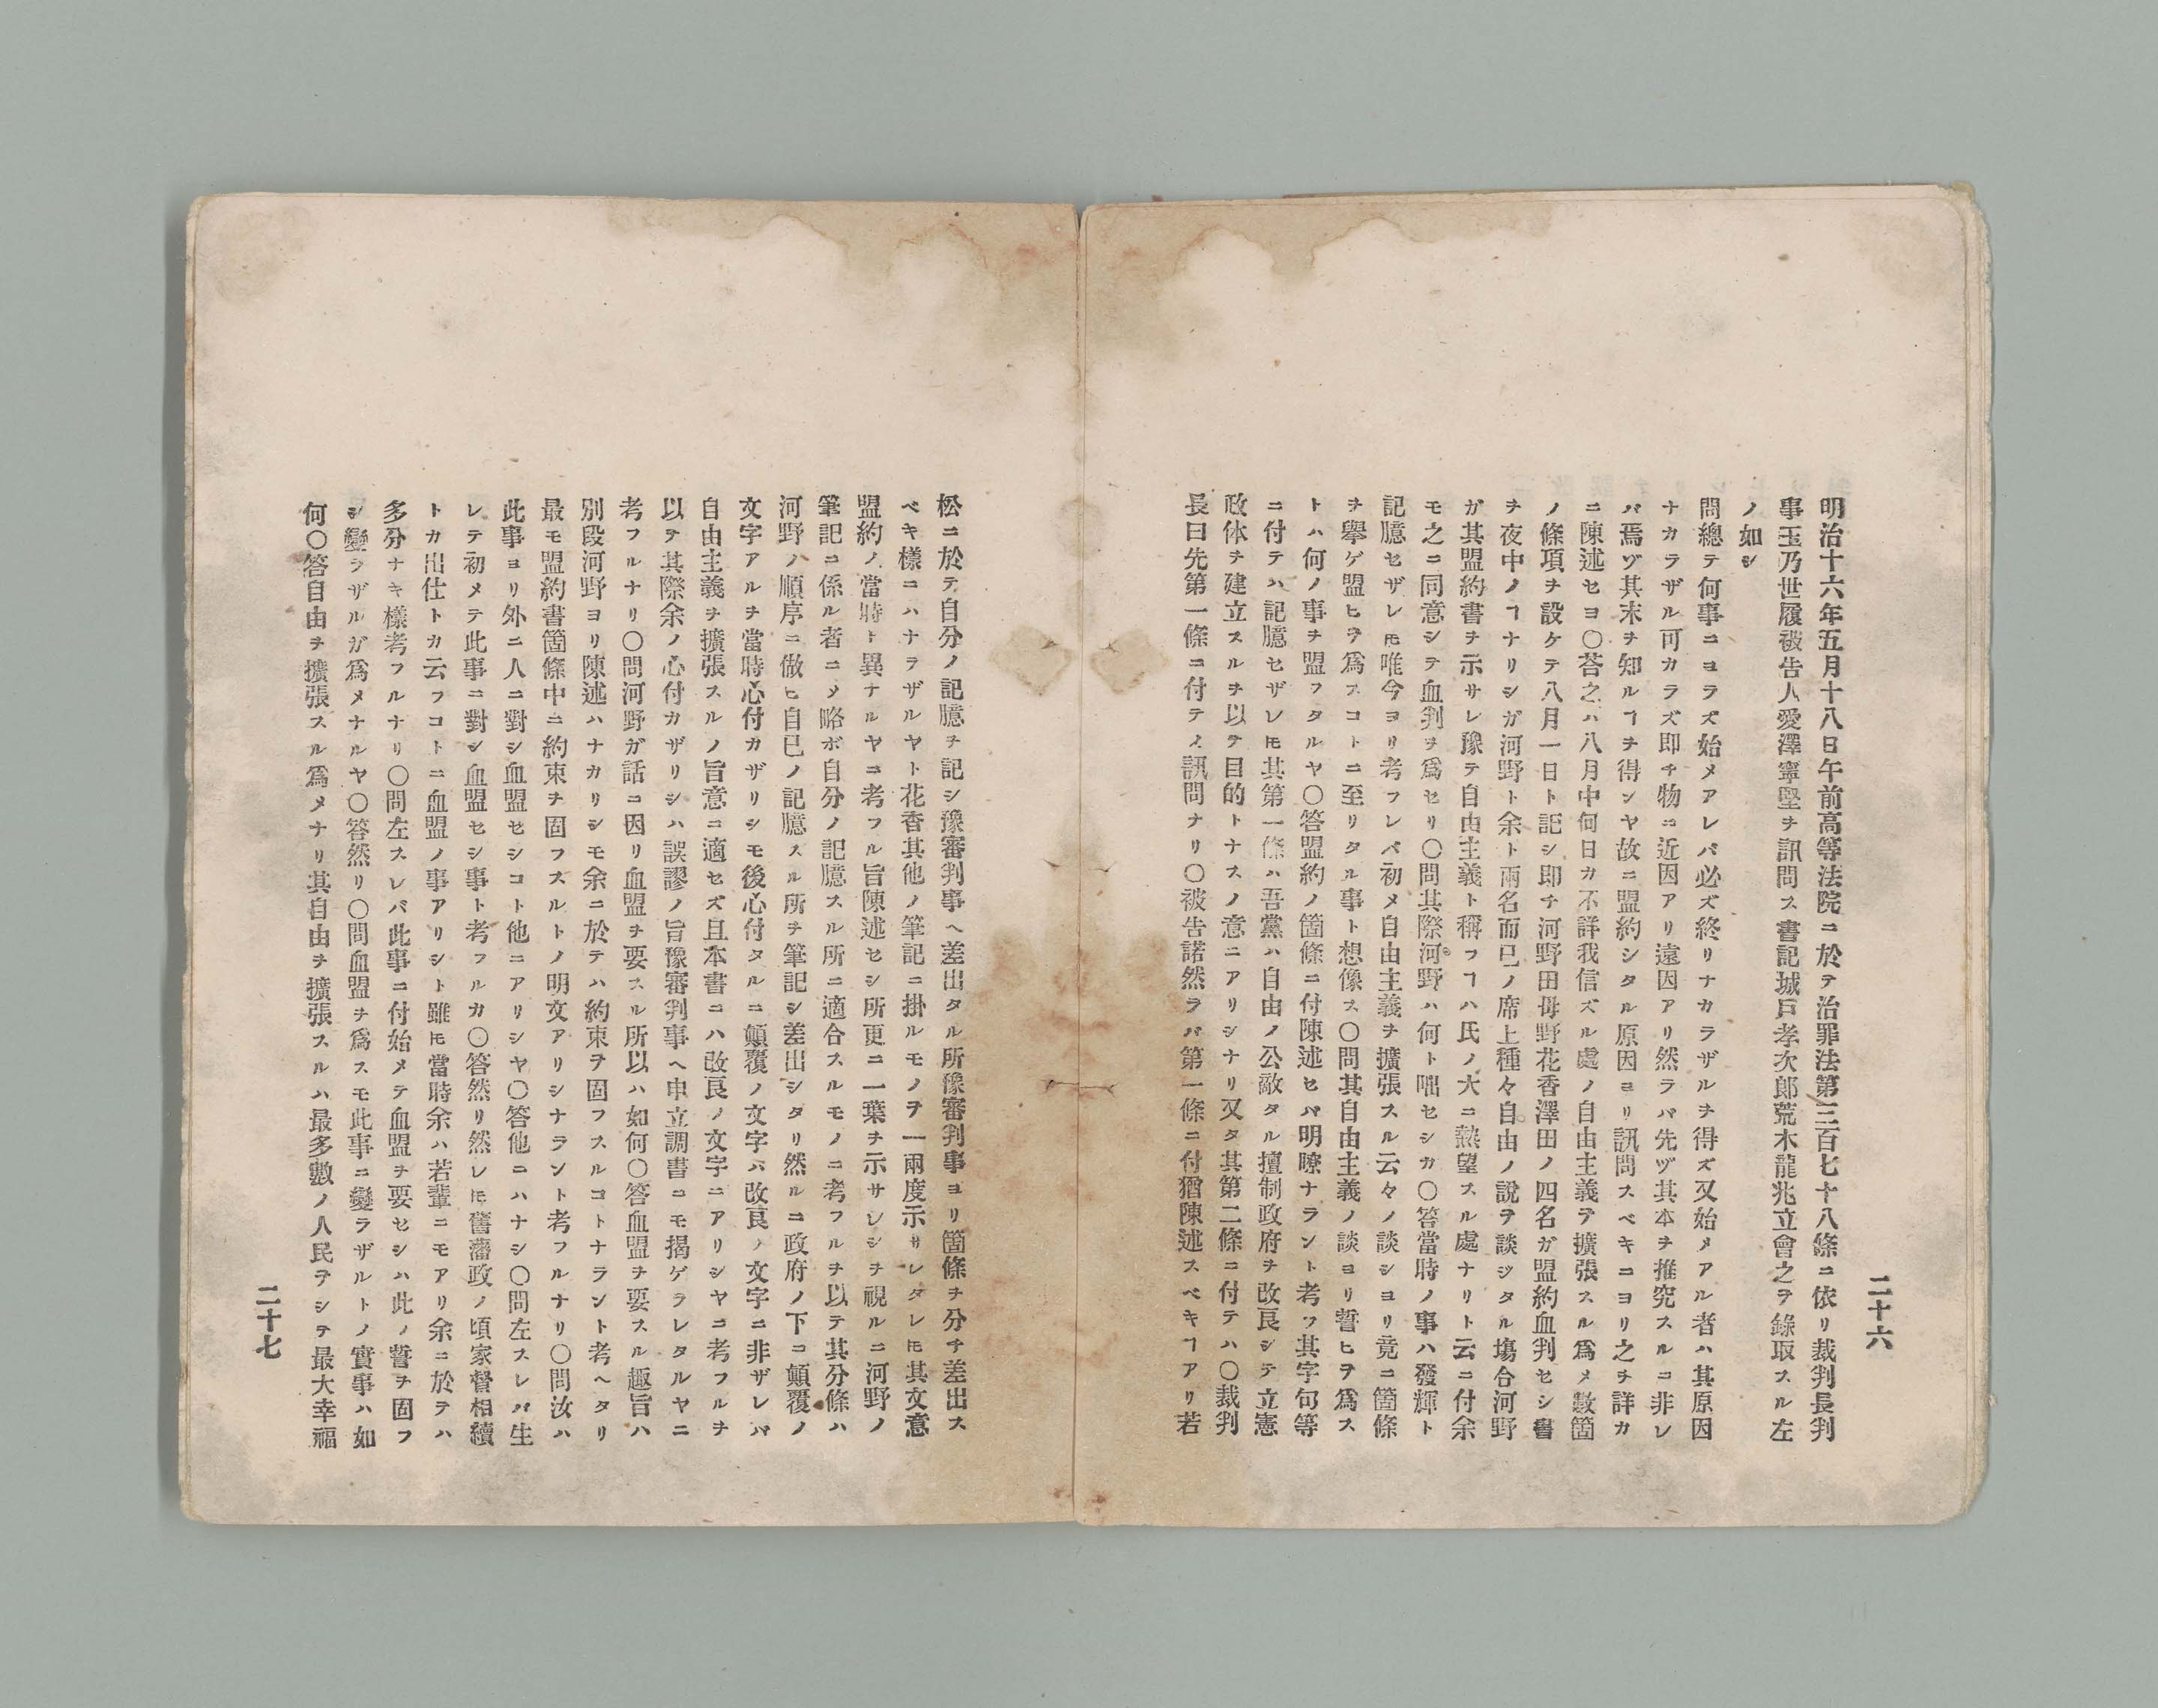 二十六
明治十六年五月十八日午前高等法院ニ於テ治罪法第三百七十八條ニ依リ裁判長判
事玉乃世履被告人愛澤寧堅ヲ訊問ス書記城戸孝次郎荒木龍兆立會之ヲ錄取スル左
ノ如シ
問總テ何事ニヨラズ始メアレバ必ズ終リナカラザルヲ得ズ又始メアル者ハ其原因
ナカラザル可カラズ即チ物ニ近因アリ遠因アリ然ラバ先ヅ其本ヲ推究スルニ非レ
バ焉ヅ其末ヲ知ルヿヲ得ンヤ故ニ盟約シタル原因ヨリ訊問スベキニヨリ之ヲ詳カ
ニ陳述セヨ〇荅之ハ八月中何日カ不詳我信ズル處ノ自由主義ヲ擴張スル爲メ數箇
ノ條項ヲ設ケテ八月一日ト記シ即チ河野田母野花香澤田ノ四名ガ盟約血判セシ書
ヲ夜中ノヿナリシガ河野ト余ト兩名而已ノ席上種々自由ノ說ヲ談ジタル塲合河野
ガ其盟約書ヲ示サレ豫テ自由主義ト稱フヿハ氏ノ大ニ熱望スル處ナリト云ニ付余
モ之ニ同意シテ血判ヲ爲セリ〇問其際河野ハ何ト咄セシカ〇答當時ノ事ハ發輝ト
記臆セザレ𪜈唯今ヨリ考フレバ初メ自由主義ヲ擴張スル云々ノ談シヨリ竟ニ箇條
ヲ擧ゲ盟ヒヲ爲スコトニ至リタル事ト想像ス〇問其自由主義ノ談ヨリ誓ヒヲ爲ス
トハ何ノ事ヲ盟フタルヤ〇答盟約ノ箇條ニ付陳述セバ明瞭ナラント考フ其字句等
ニ付テハ記臆セザレ𪜈其第一條ハ吾黨ハ自由ノ公敵タル擅制政府ヲ改良シテ立憲
政体ヲ建立スルヲ以テ目的トナスノ意ニアリシナリ又タ其第二條ニ付テハ〇裁判
長曰先第一條ニ付テノ訊問ナリ〇被告諾然ラバ第一條ニ付猶陳述スベキヿアリ若
松ニ於テ自分ノ記臆ヲ記シ豫審判事ヘ差出タル所豫審判事ヨリ箇條ヲ分チ差出ス
ベキ樣ニハナラザルヤト花香其他ノ筆記ニ掛ルモノヲ一兩度示サレタレ𪜈其文意
盟約ノ當時ト異ナルヤニ考フル旨陳述セシ所更ニ一葉ヲ示サレシヲ視ルニ河野ノ
筆記ニ係ル者ニメ略ボ自分ノ記臆スル所ニ適合スルモノニ考フルヲ以テ其分條ハ
河野ノ順序ニ倣ヒ自已ノ記臆スル所ヲ筆記シ差出シタリ然ルニ政府ノ下ニ顛覆ノ
文字アルヲ當時心付カザリシモ後心付タルニ顛覆ノ文字ハ改良ノ文字ニ非ザレバ
自由主義ヲ擴張スルノ旨意ニ適セズ且本書ニハ改良ノ文字ニアリシヤニ考フルヲ
以テ其際余ノ心付カザリシハ誤謬ノ旨豫審判事ヘ申立調書ニモ揭ゲラレタルヤニ
考フルナリ〇問河野ガ話ニ因リ血盟ヲ要スル所以ハ如何〇答血盟ヲ要スル趣旨ハ
別段河野ヨリ陳述ハナカリシモ余ニ於テハ約束ヲ固フスルコトナラント考ヘタリ
最モ盟約書箇條中ニ約束ヲ固フスルトノ明文アリシナラント考フルナリ〇問汝ハ
此事ヨリ外ニ人ニ對シ血盟セシコト他ニアリシヤ〇答他ニハナシ〇問左スレバ生
レテ初メテ此事ニ對シ血盟セシ事ト考フルカ〇答然リ然レ𪜈舊藩政ノ頃家督相續
トカ出仕トカ云フコトニ血盟ノ事アリシト雖𪜈當時余ハ若輩ニモアリ余ニ於テハ
多分ナキ樣考フルナリ〇問左スレバ此事ニ付始メテ血盟ヲ要セシハ此ノ誓ヲ固フ
シ變ラザルガ爲メナルヤ〇答然リ〇問血盟ヲ爲スモ此事ニ變ラザルトノ實事ハ如
何〇答自由ヲ擴張スル爲メナリ其自由ヲ擴張スルハ最多數ノ人民ヲシテ最大幸福
二十七